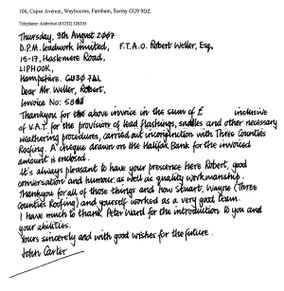 106, Copse Avenue, Weybourne, Farnham, Surrey GU9 9DZ
Telephone: Aldershot (01252)
Thursday, 9th August 2007
D.P.M. Leadwork Limited, F.T.A.O. Robert Weller, Esq.
15-17, Haslemere Road.
LIPHOOK,
Hampshire. GU30 7AL
Dear Mr. Weller, Robert,
Invoice No: 58
Thankyou for the above invoice in the sum of £ inclusive
of V.A.T. for the provision of lead flashings, saddles and other necessary
weathering procedures, carried out in conjunction with Three Counties
Roofing. A cheque drawn on the Halifax Bank for the invoiced
amount is enclosed.
It's always pleasant to have your presence here Robert, good
conversation and humour, as well as quality workmanship.
Thankyou for all of those things and how Stuart, Wayne (Three
Counties Roofing) and yourself worked as a very good team.
I have much to thank Peter Ward for the introduction to you and
your abilities.
Yours sincerely and with good wishes for the future.
John Carter